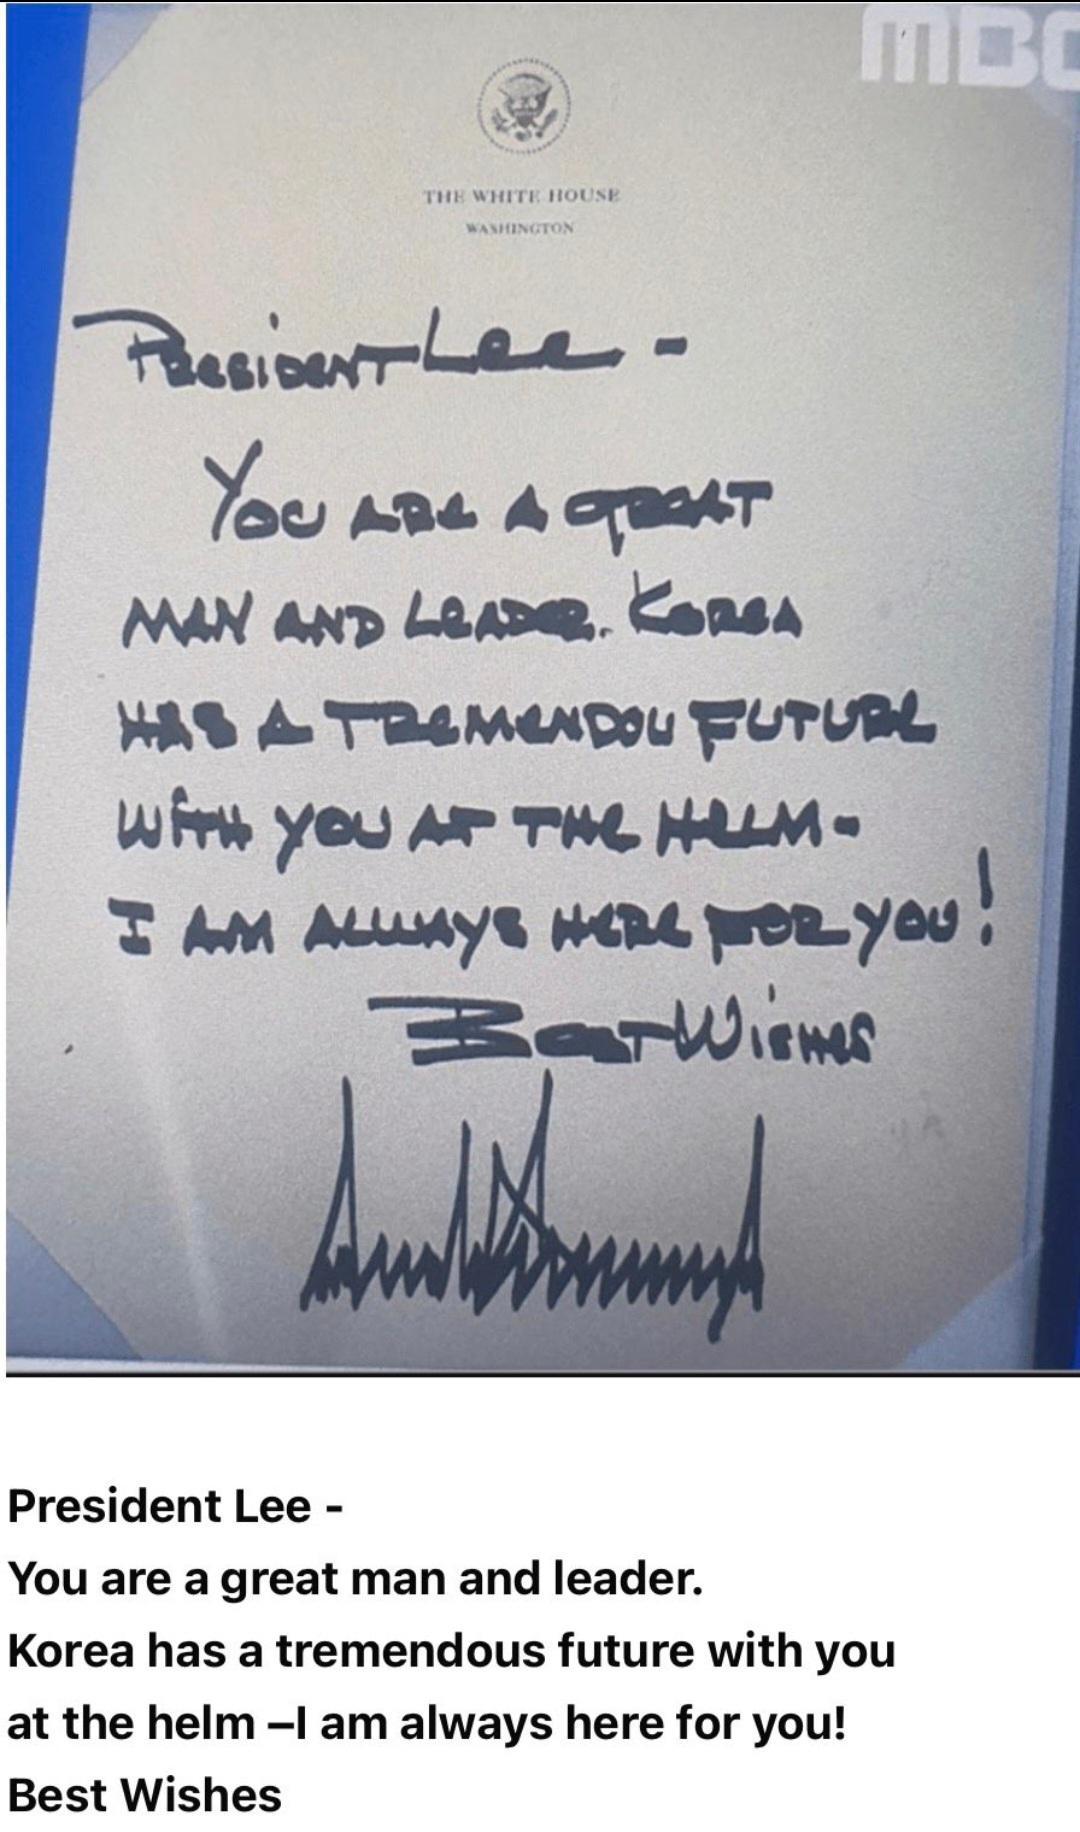 MBC
THE WHITE HOUSE
WASHINGTON
PRESIDENT LEE -
YOU ARE A GREAT
MAN AND LEADER. KOREA
HAS A TREMENDOU FUTURE
WITH YOU AT THE HELM-
I AM ALWAYS HERE FOR YOU!
BEST WISHES
President Lee -
You are a great man and leader.
Korea has a tremendous future with you
at the helm –I am always here for you!
Best Wishes